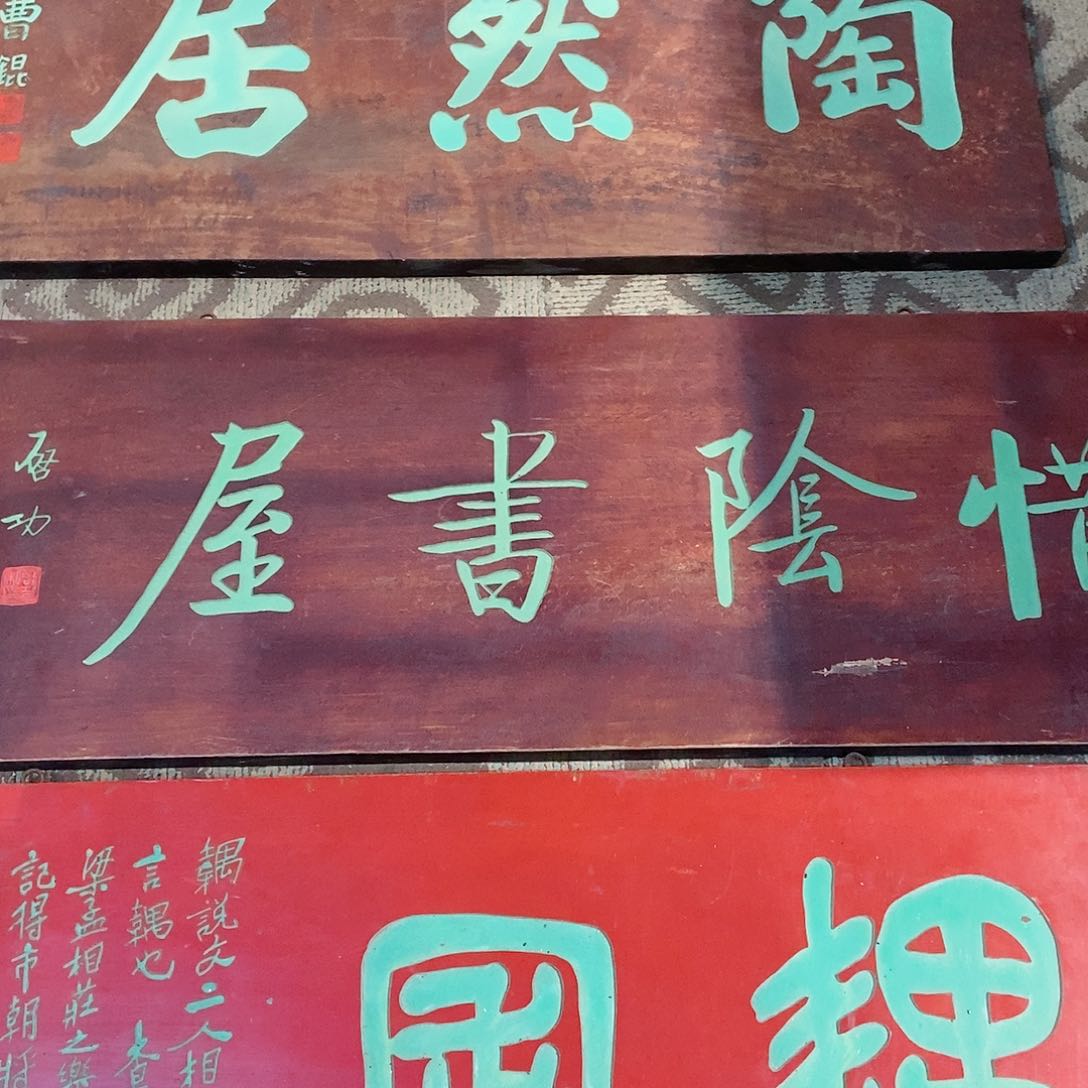 陶然居
曹錕
惜陰書屋
啓功
耦說文二人相
言耦也
梁孟相莊之樂
記得市朝將